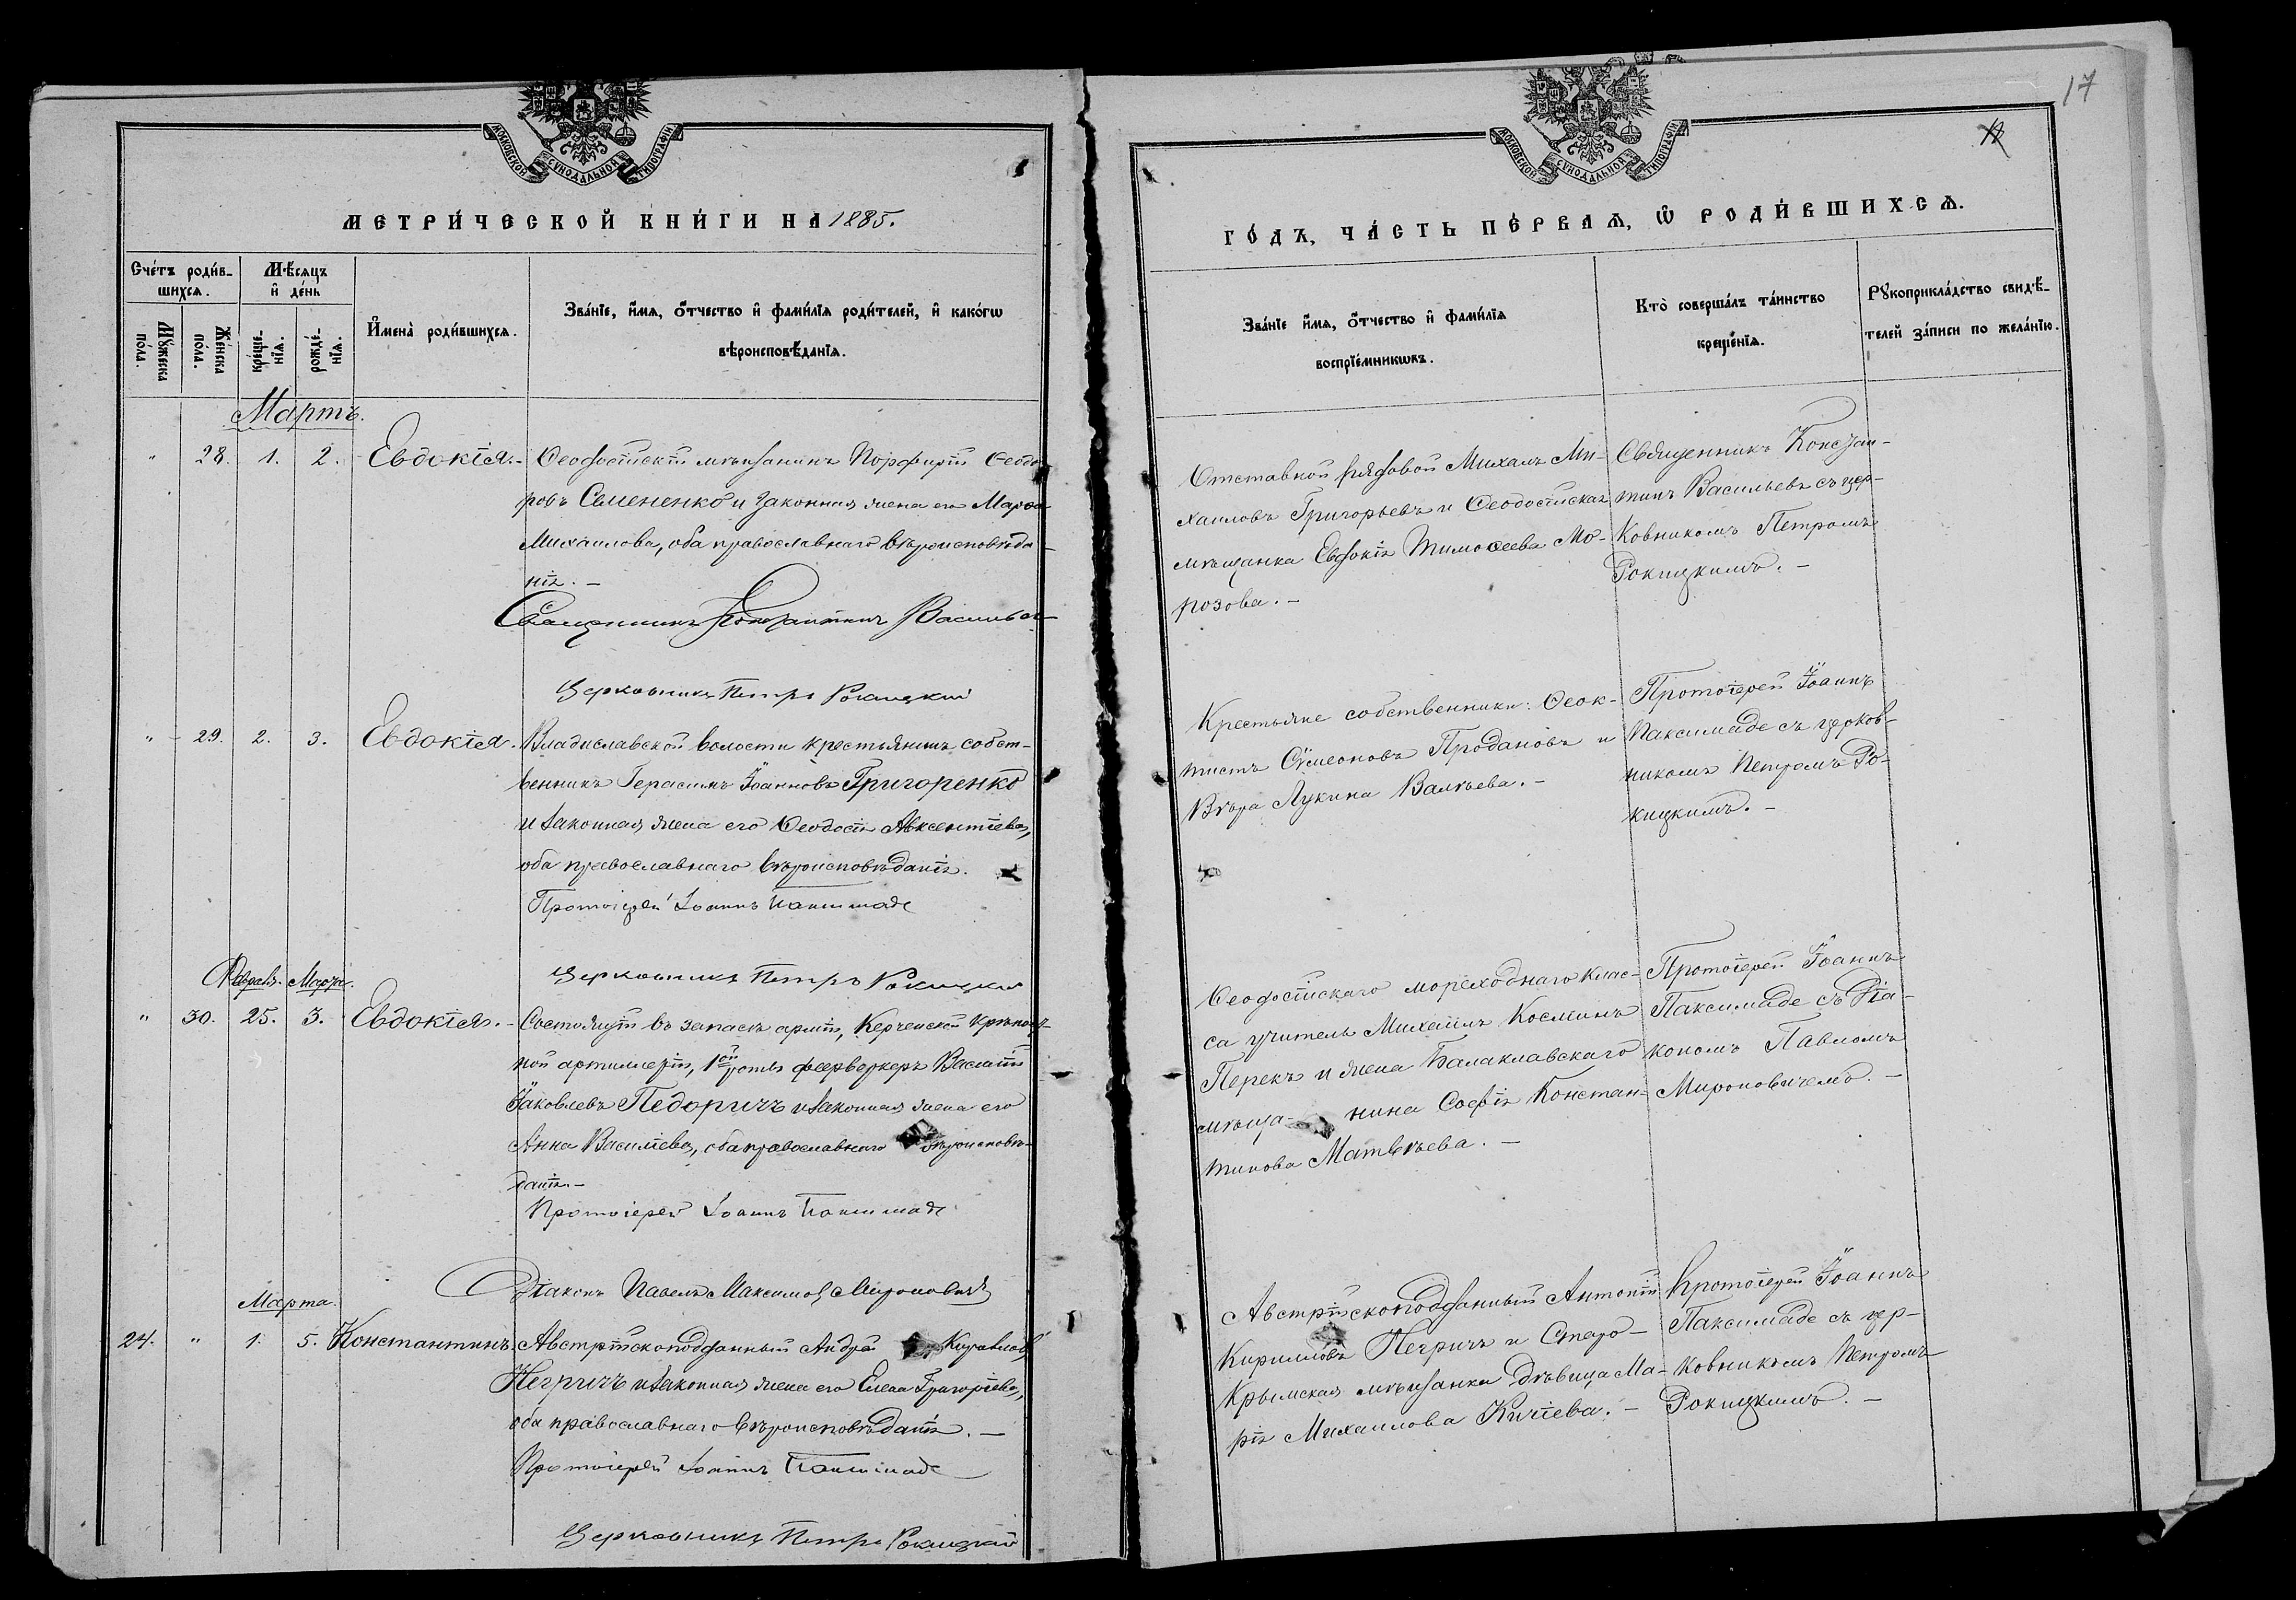 17
МОСКОВСКОЙ СУНОДАЛЬНОЙ ТИПОГРАФІИ
МЕТРИ́ЧЕСКОЙ КНИ́ГИ НА 1885.
Сче́тъ роди́в-
шихсѧ.
Мѣ́сѧцъ
и҆ де́нь
Мꙋ́жеска
по́ла.
Же́нска
по́ла.
креще́-
нїѧ.
рожде́-
нїѧ.
И҆мена̀ роди́вшихсѧ.
Зва́нїе, и҆́мѧ, ѻ҆́тчество и҆ фами́лїѧ роди́телей, и҆ како́гѡ
вѣроисповѣ́данїѧ.
Мартъ.
" 28. 1. 2. Евдокія.
Ѳеодосійскій мѣщанинъ Порфирій Ѳеодо-
ровъ Семененко и законная жена его Марѳа
Михаилова, оба православнаго вѣроисповѣда-
нія. –
Священникъ Константинъ Васильевъ
Церковникъ Петръ Рокицкій
" 29. 2. 3. Евдокія.
Владиславской волости крестьянинъ собст-
венникъ Герасимъ Іоанновъ Григоренко
и законная жена его Ѳеодосія Авксентіева,
оба православнаго вѣроисповѣданія.
Протоіерей Іоаннъ Паксимаде
Церковникъ Петръ Рокицкій
Феврал. Марта.
" 30. 25. 3. Евдокія. –
Состоящій въ запасѣ арміи, Керченской крѣпост-
ной артиллеріи, 1ой роты фейерверкеръ Василій
Іаковлевъ Педоричъ и законная жена его
Анна Василіева, оба православнаго вѣроисповѣ-
данія. –
Протоіерей Іоаннъ Паксимаде
Діаконъ Павелъ Максимовъ Мироновичъ
Марта.
24. " 1. 5. Константинъ.
Австрійскоподданный Андрей Кирилловъ
Негричъ и законная жена его Елена Григоріева,
оба православнаго вѣроисповѣданія. –
Протоіерей Іоаннъ Паксимаде
Церковникъ Петръ Рокицкій
МОСКОВСКОЙ СУНОДАЛЬНОЙ ТИПОГРАФІИ
ГО́ДЪ, ЧА́СТЬ ПЕ́РВАѦ, Ѡ҆ РОДИ́ВШИХСѦ.
Зва́нїе и҆́мѧ, ѻ҆́тчество и҆ фами́лїѧ
воспрїе́мникѡвъ.
Кто̀ соверша́лъ та́инство
креще́нїѧ.
Рꙋкоприкла́дство свидѣ́-
телей за́писи по жела́нїю.
Отставной рядовой Михаилъ Ми-
хаиловъ Григорьевъ и Ѳеодосійская
мѣщанка Евдокія Тимоѳеева Мо-
розова. –
Священникъ Констан-
тинъ Васильевъ съ цер-
ковникомъ Петромъ
Рокицкимъ. –
Крестьяне собственники: Ѳеок-
тистъ Сѵмеоновъ Продановъ и
Вѣра Лукина Валѣева. –
Протоіерей Іоаннъ
Паксимаде съ церков-
никомъ Петромъ Ро-
кицкимъ. –
Ѳеодосійскаго мореходнаго клас-
са учитель Михаилъ Косминъ
Перекъ и жена Балаклавскаго
мѣща- нина Софія Констан-
тинова Матвѣева. –
Протоіерей Іоаннъ
Паксимаде съ діа-
кономъ Павломъ
Мироновичемъ. –
Австрійскоподданный Антоній
Кирилловъ Негричъ и Старо-
Крымская мѣщанка дѣвица Ма-
рія Михаилова Кичіева. –
Протоіерей Іоаннъ
Паксимаде съ цер-
ковникомъ Петромъ
Рокицкимъ. –